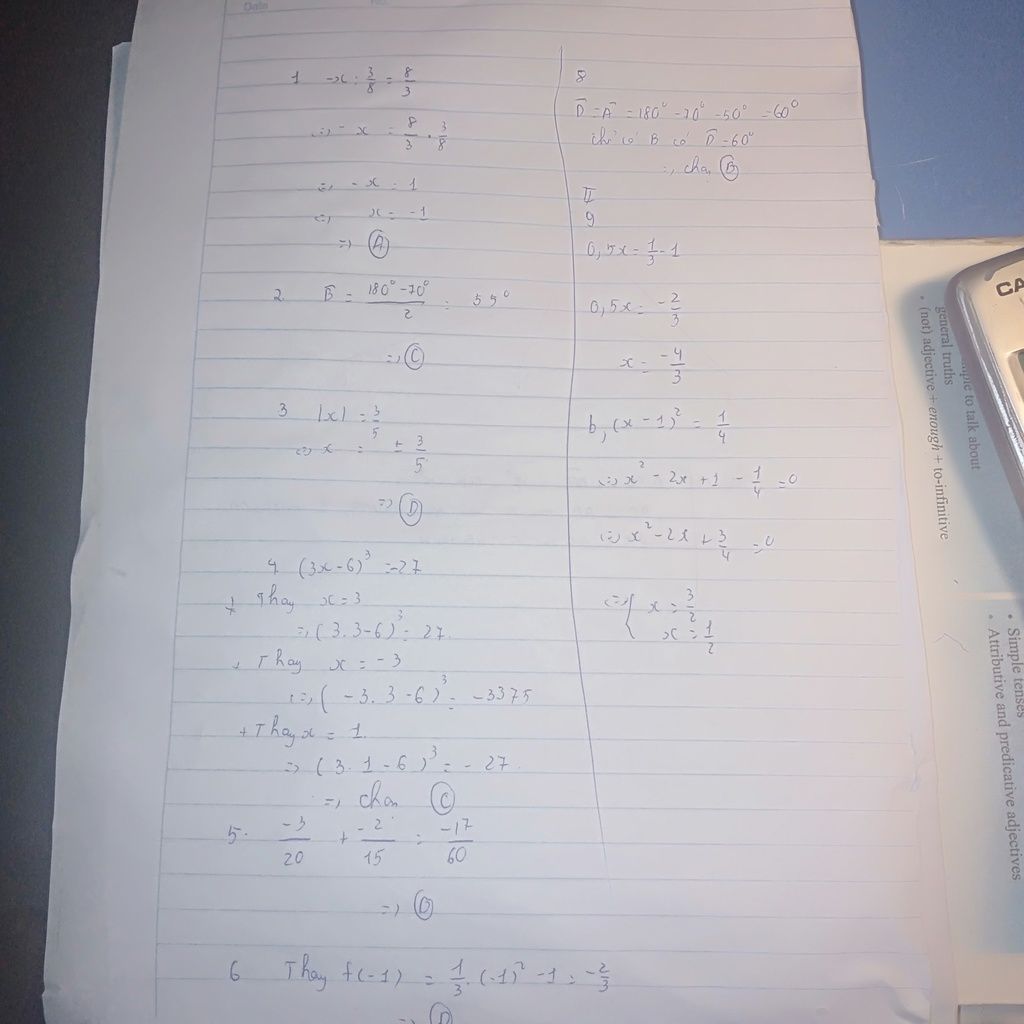 Date
No.
1 -x : 3/8 = 8/3
<=> -x = 8/3 . 3/8
=> -x = 1
<=> x = -1
=> Ⓐ
2. B̂ = (180° - 70°)/2 = 55°
=> Ⓒ
3 |x| = 3/5
<=> x = ± 3/5
=> Ⓓ
4. (3x-6)³ = -27
+ Thay x = 3
=> (3.3-6)³ = 27.
+ Thay x = -3
<=> (-3.3-6)³ = -3375
+ Thay x = 1.
=> (3.1-6)³ = -27.
=> chọn Ⓒ
5. -3/20 + -2/15 = -17/60
=> Ⓓ
6 Thay f(-1) = 1/3 . (-1)² - 1 = -2/3
=> Ⓓ
8
D̂ = Â = 180° - 70° - 50° = 60°
chỉ có B có D̂ = 60°
=> chọn Ⓑ
II
9
0,5x = 1/3 - 1
0,5x = -2/3
x = -4/3
b, (x-1)² = 1/4
<=> x² - 2x + 1 - 1/4 = 0
<=> x² - 2x + 3/4 = 0
<=> { x = 3/2
x = 1/2
CA
to talk about
general truths
• (not) adjective + enough + to-infinitive
• Simple tenses
• Attributive and predicative adjectives